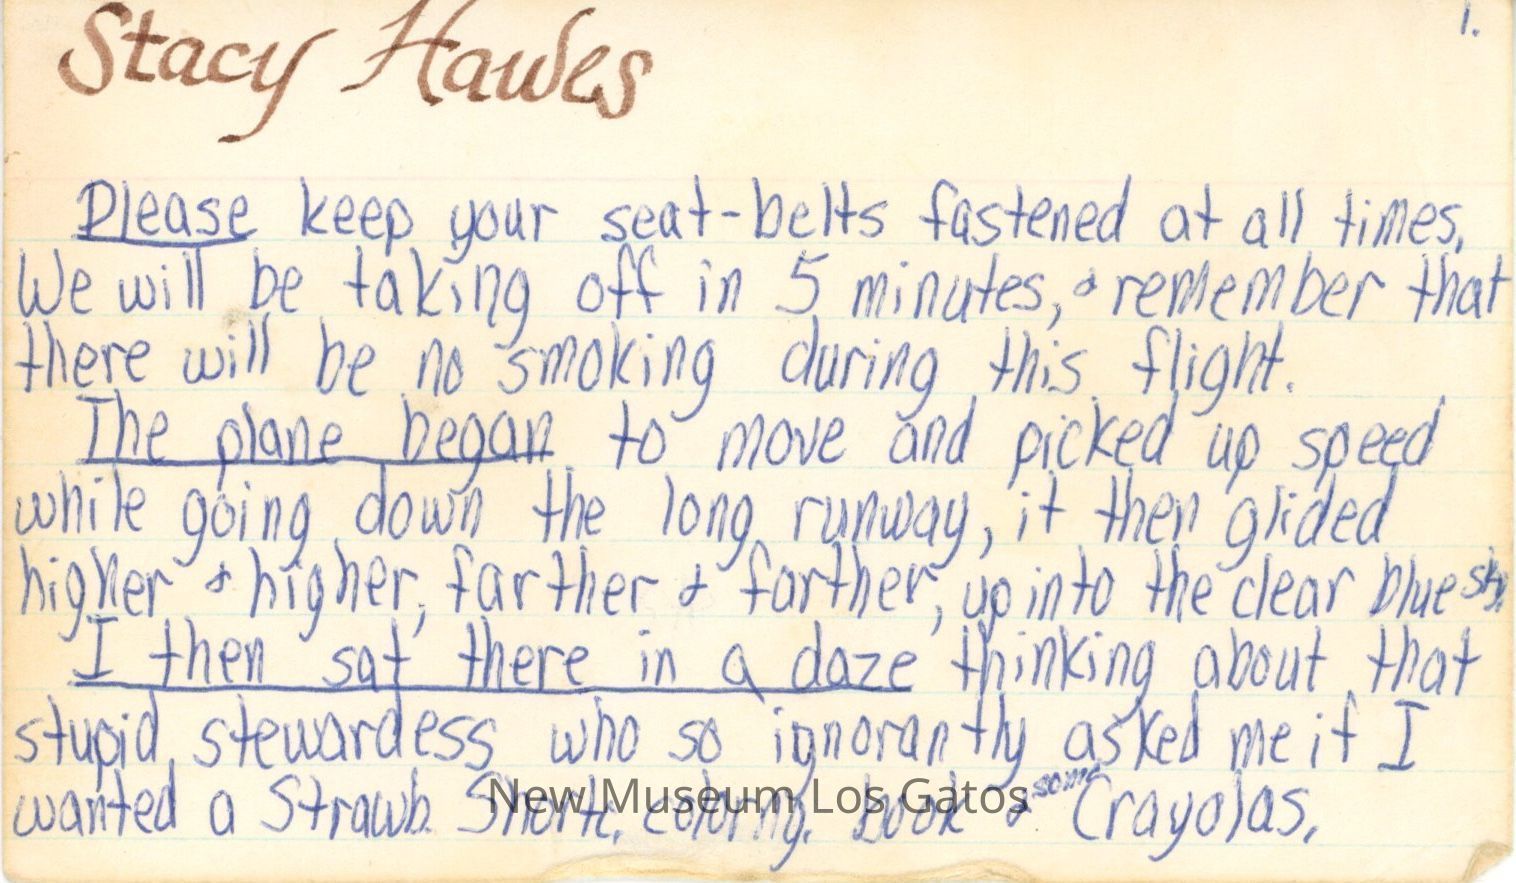 1.
Stacy Hawes
Please keep your seat-belts fastened at all times.
We will be taking off in 5 minutes, & remember that
there will be no smoking during this flight.
The plane began to move and picked up speed
while going down the long runway, it then glided
higher & higher, farther & farther, up into the clear blue sky.
I then sat there in a daze thinking about that
stupid stewardess who so ignorantly asked me if I
wanted a Strawb. Shortc. coloring. book & some Crayolas.
New Museum Los Gatos